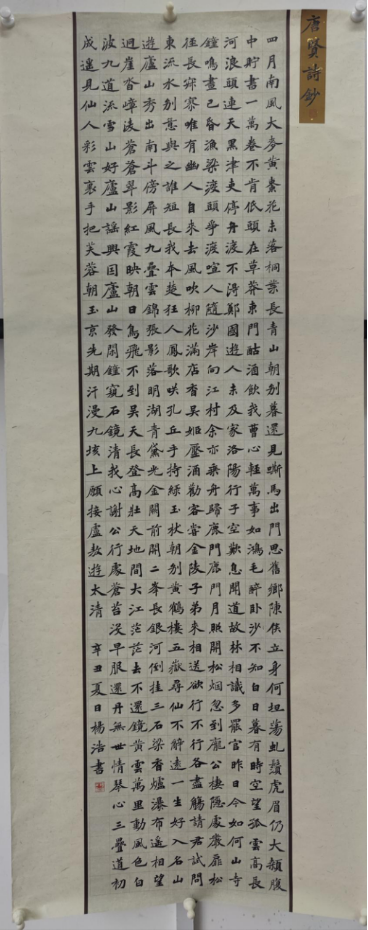 唐賢詩鈔
四月南風大麥黃棗花未落桐葉長青山朝別暮還見嘶馬出門思舊鄉陳侯立身何坦蕩虬鬚虎眉仍大顙腹
中貯書一萬卷不肯低頭在草莽東門酤酒飲我曹心輕萬事如鴻毛醉卧沙不知白日暮有時空望孤雲高長
河浪頭連天黑津吏停舟渡不得鄭國遊人未及家洛陽行子空歎息聞道故林相識多羅官昨日今如何山寺
鐘鳴晝已昏漁梁渡頭爭渡喧人隨沙岸向江村余亦乘舟歸鹿門鹿門月照開松烟忽到龐公棲隱處巖扉松
徑長寂寥唯有幽人自來去風吹柳花滿店香吳姬壓酒勸客嘗金陵子弟來相送欲行不行各盡觴請君試問
東流水別意與之誰短長我本楚狂人鳳歌笑孔丘手持綠玉杖朝別黃鶴樓五嶽尋仙不辭遠一生好入名山
遊廬山秀出南斗傍屏風九疊雲錦張影落明湖青黛光金闕前開二峯長銀河倒挂三石梁香爐瀑布遙相望
迴崖沓嶂凌蒼蒼翠影紅霞映朝日鳥飛不到吳天長登高壯天地間大江茫茫去不還鏡黃雲萬里動風色白
波九道流雪山好廬山謠興因廬山發閒窺石鏡清我心謝公行處蒼苔沒早服還丹無世情琴心三疊道初
成遙見仙人彩雲裏手把芙蓉朝玉京先期汗漫九垓上願接盧敖遊太清 辛丑夏日楊浩書